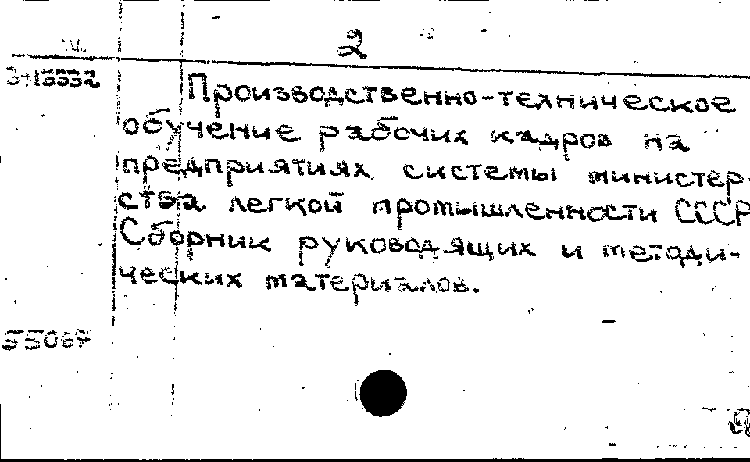 2
Производственно-техническое
обучение рабочих кадров на
предприятиях системы министер-
ства легкой промышленности СССР
Сборник руководящих и методи-
ческих материалов.
55067